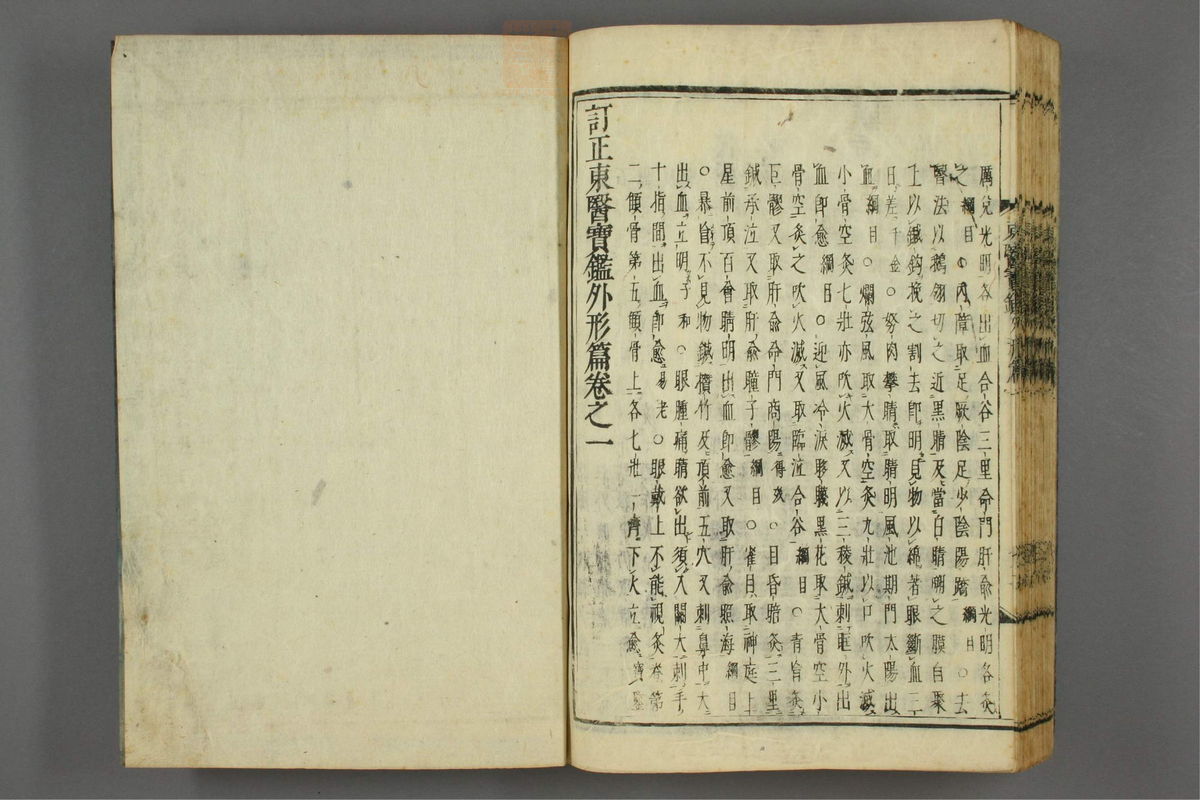 厲兌光明各出血合谷三里命門肝兪光明各灸
之綱目○內障取足厥陰足少陰陽蹻綱目○去
瞖法以鵝翎切之近黑睛及當白睛嚼之膜自聚
上以鍼鈎挽之割去卽明見物以綿著眼斷血三
日差千金○努肉攀睛取睛明風池期門太陽出
血綱目○爛弦風取大骨空灸九壯以口吹火滅
小骨空灸七壯亦吹火滅又以三稜鍼刺眶外出
血卽愈綱目○迎風冷淚眵䁾黑花取大骨空小
骨空灸之吹火滅又取臨泣合谷綱目○青盲灸
巨髎又取肝兪命門商陽得效○目昏暗灸三里
鍼承泣又取肝兪瞳子髎綱目○雀目取神庭上
星前頂百會睛明出血卽愈又取肝兪照海綱目
○暴盲不見物鍼攢竹及頂前五穴又刺鼻中大
出血立明子和○眼腫痛睛欲出須八關大刺手
十指間出血卽愈易老○眼戴上不能視灸脊第
二顀骨第五顀骨上各七壯一齊下火立愈寶鑑
訂正東醫寶鑑外形篇卷之一